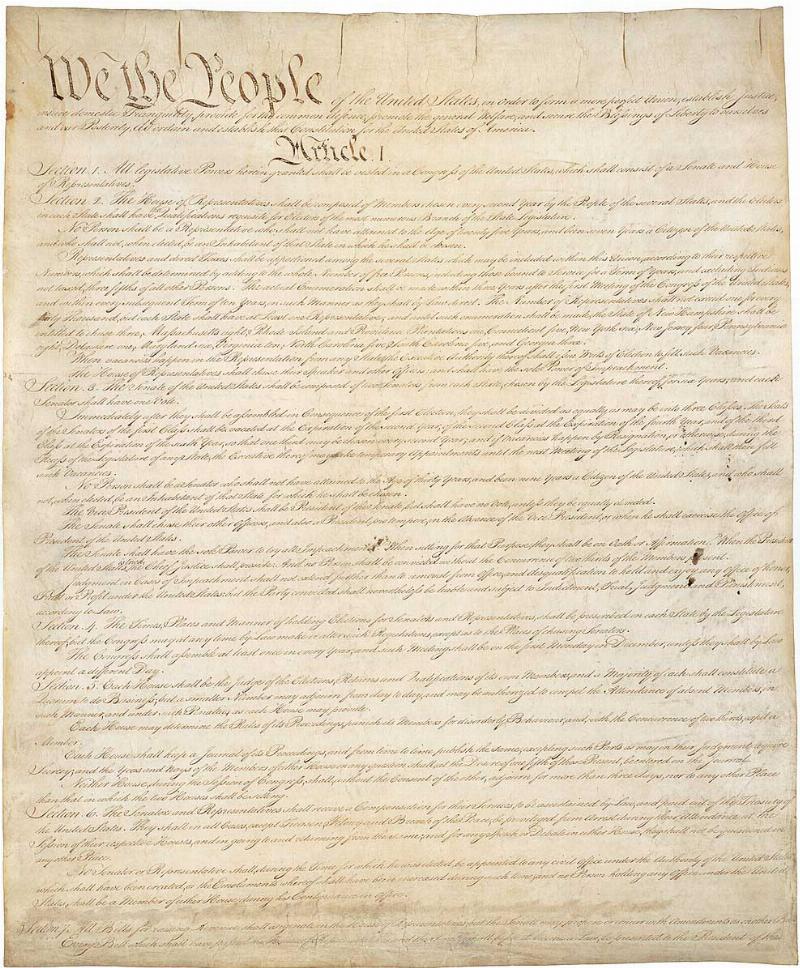 We the People of the United States, in Order to form a more perfect Union, establish Justice,
insure domestic Tranquility, provide for the common defence, promote the general Welfare, and secure the Blessings of Liberty to ourselves
and our Posterity, do ordain and establish this Constitution for the United States of America.
Article. I.
Section. 1. All legislative Powers herein granted shall be vested in a Congress of the United States, which shall consist of a Senate and House
of Representatives.
Section. 2. The House of Representatives shall be composed of Members chosen every second Year by the People of the several States, and the Electors
in each State shall have Qualifications requisite for Electors of the most numerous Branch of the State Legislature.
No Person shall be a Representative who shall not have attained to the Age of twenty five Years, and been seven Years a Citizen of the United States,
and who shall not, when elected, be an Inhabitant of that State in which he shall be chosen.
Representatives and direct Taxes shall be apportioned among the several States which may be included within this Union, according to their respective
Numbers, which shall be determined by adding to the whole Number of free Persons, including those bound to Service for a Term of Years, and excluding Indians
not taxed, three fifths of all other Persons. The actual Enumeration shall be made within three Years after the first Meeting of the Congress of the United States,
and within every subsequent Term of ten Years, in such Manner as they shall by Law direct. The Number of Representatives shall not exceed one for every
thirty Thousand, but each State shall have at Least one Representative; and until such enumeration shall be made, the State of New Hampshire shall be
entitled to chuse three, Massachusetts eight, Rhode Island and Providence Plantations one, Connecticut five, New York six, New Jersey four, Pennsylvania
eight, Delaware one, Maryland six, Virginia ten, North Carolina five, South Carolina five, and Georgia three.
When vacancies happen in the Representation from any State, the Executive Authority thereof shall issue Writs of Election to fill such Vacancies.
The House of Representatives shall chuse their Speaker and other Officers; and shall have the sole Power of Impeachment.
Section. 3. The Senate of the United States shall be composed of two Senators from each State, chosen by the Legislature thereof, for six Years; and each
Senator shall have one Vote.
Immediately after they shall be assembled in Consequence of the first Election, they shall be divided as equally as may be into three Classes. The Seats
of the Senators of the first Class shall be vacated at the Expiration of the second Year, of the second Class at the Expiration of the fourth Year, and of the third
Class at the Expiration of the sixth Year, so that one third may be chosen every second Year; and if Vacancies happen by Resignation, or otherwise, during the
Recess of the Legislature of any State, the Executive thereof may make temporary Appointments until the next Meeting of the Legislature, which shall then fill
such Vacancies.
No Person shall be a Senator who shall not have attained to the Age of thirty Years, and been nine Years a Citizen of the United States, and who shall
not, when elected, be an Inhabitant of that State for which he shall be chosen.
The Vice President of the United States shall be President of the Senate, but shall have no Vote, unless they be equally divided.
The Senate shall chuse their other Officers, and also a President pro tempore, in the Absence of the Vice President, or when he shall exercise the Office of
President of the United States.
The Senate shall have the sole Power to try all Impeachments. When sitting for that Purpose, they shall be on Oath or Affirmation. When the President
of the United States is tried, the Chief Justice shall preside: And no Person shall be convicted without the Concurrence of two thirds of the Members present.
Judgment in Cases of Impeachment shall not extend further than to removal from Office, and disqualification to hold and enjoy any Office of honor,
Trust or Profit under the United States: but the Party convicted shall nevertheless be liable and subject to Indictment, Trial, Judgment and Punishment,
according to Law.
Section. 4. The Times, Places and Manner of holding Elections for Senators and Representatives, shall be prescribed in each State by the Legislature
thereof; but the Congress may at any time by Law make or alter such Regulations, except as to the Places of chusing Senators.
The Congress shall assemble at least once in every Year, and such Meeting shall be on the first Monday in December, unless they shall by Law
appoint a different Day.
Section. 5. Each House shall be the Judge of the Elections, Returns and Qualifications of its own Members, and a Majority of each shall constitute a
Quorum to do Business; but a smaller Number may adjourn from day to day, and may be authorized to compel the Attendance of absent Members, in
such Manner, and under such Penalties as each House may provide.
Each House may determine the Rules of its Proceedings, punish its Members for disorderly Behaviour, and, with the Concurrence of two thirds, expel a
Member.
Each House shall keep a Journal of its Proceedings, and from time to time publish the same, excepting such Parts as may in their Judgment require
Secrecy; and the Yeas and Nays of the Members of either House on any question shall, at the Desire of one fifth of those Present, be entered on the Journal.
Neither House, during the Session of Congress, shall, without the Consent of the other, adjourn for more than three days, nor to any other Place
than that in which the two Houses shall be sitting.
Section. 6. The Senators and Representatives shall receive a Compensation for their Services, to be ascertained by Law, and paid out of the Treasury of
the United States. They shall in all Cases, except Treason, Felony and Breach of the Peace, be privileged from Arrest during their Attendance at the
Session of their respective Houses, and in going to and returning from the same; and for any Speech or Debate in either House, they shall not be questioned in
any other Place.
No Senator or Representative shall, during the Time for which he was elected, be appointed to any civil Office under the Authority of the United States,
which shall have been created, or the Emoluments whereof shall have been encreased during such time; and no Person holding any Office under the United
States, shall be a Member of either House during his Continuance in Office.
Section. 7. All Bills for raising Revenue shall originate in the House of Representatives; but the Senate may propose or concur with Amendments as on other Bills.
Every Bill which shall have passed the House of Representatives and the Senate, shall, before it become a Law, be presented to the President of the